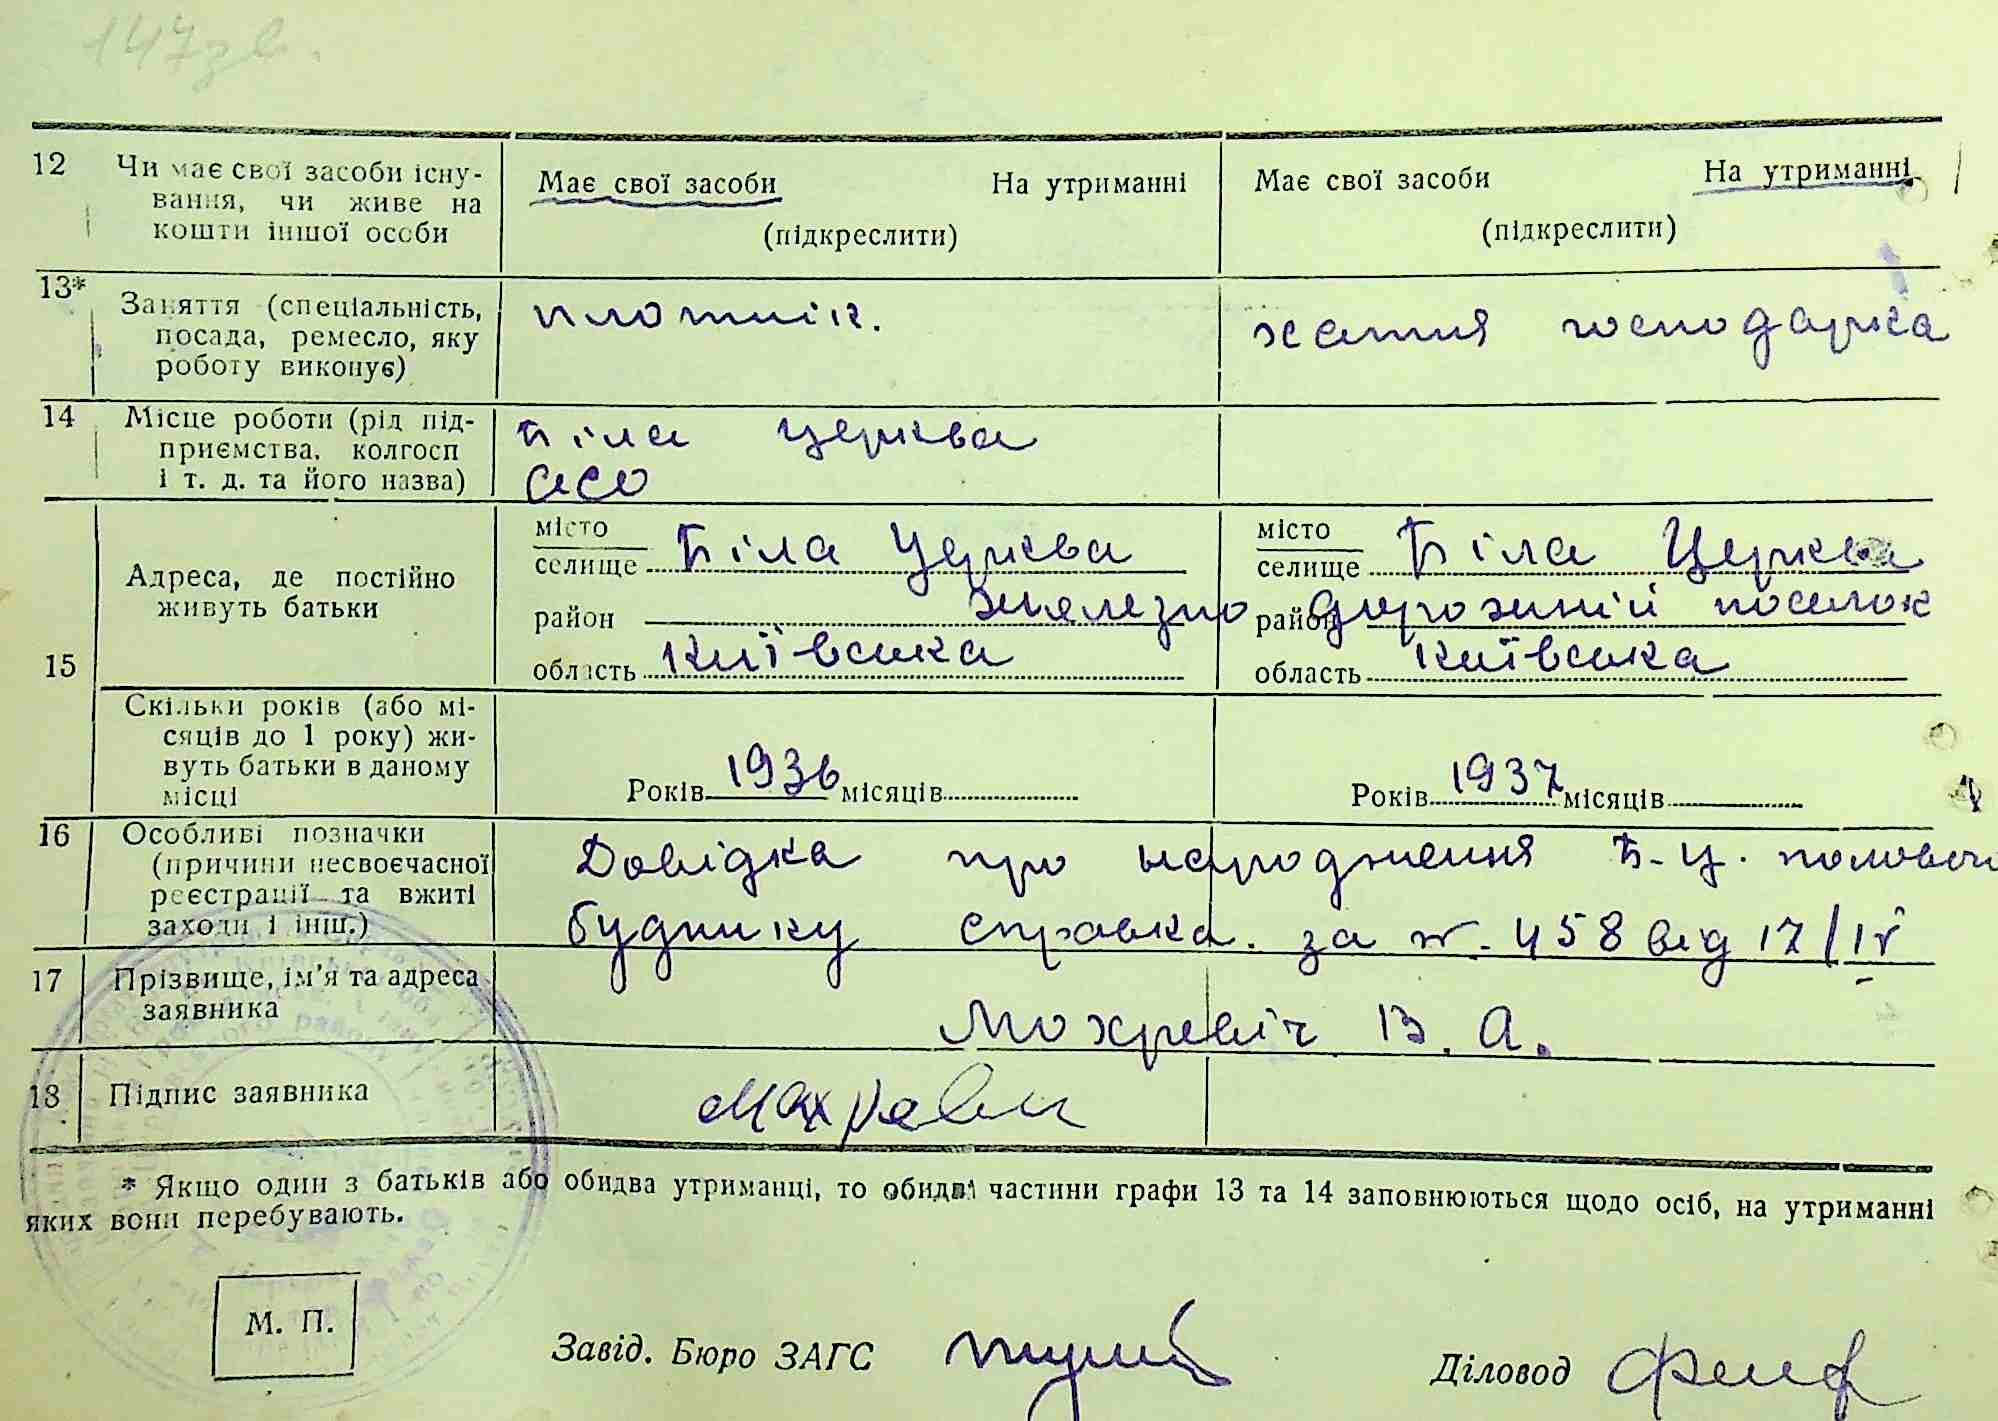 147зв.
12 Чи має свої засоби існу-
вання, чи живе на
кошти іншої особи
Має свої засоби На утриманні
(підкреслити)
Має свої засоби На утриманні
(підкреслити)
13* Заняття (спеціальність,
посада, ремесло, яку
роботу виконує)
плотнік.
хатня господарка
14 Місце роботи (рід під-
приємства, колгосп
і т. д. та його назва)
Біла церква
АСО
15
Адреса, де постійно
живуть батьки
місто
селище Біла Церква
район Желєзно дорожній поселок
область Київська
місто
селище Біла Церква
район
область Київська
Скільки років (або мі-
сяців до 1 року) жи-
вуть батьки в даному
місці
Років 1936 місяців
Років 1937 місяців
16 Особливі позначки
(причини несвоєчасної
реєстрації та вжиті
заходи і інш.)
Довідка про народження Б-Ц.
будинку справка. за №. 458 від 17/IV
17 Прізвище, ім'я та адреса
заявника
Мохревіч В. А.
18 Підпис заявника
* Якщо один з батьків або обидва утриманці, то обидві частини графи 13 та 14 заповнюються щодо осіб, на утриманні
яких вони перебувають.
М. П.
Завід. Бюро ЗАГС
Діловод